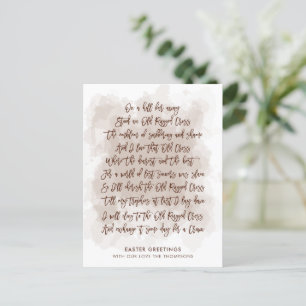 On a hill far away
Stood an Old Rugged Cross
The emblem of suffering and shame
And I love that Old Cross
Where the dearest and the best
For a world of lost sinners was slain
So I'll cherish the Old Rugged Cross
Till my trophies at last I lay down
I will cling to the Old Rugged Cross
And exchange it some day for a Crown
EASTER GREETINGS
WITH OUR LOVE THE THOMPSONS